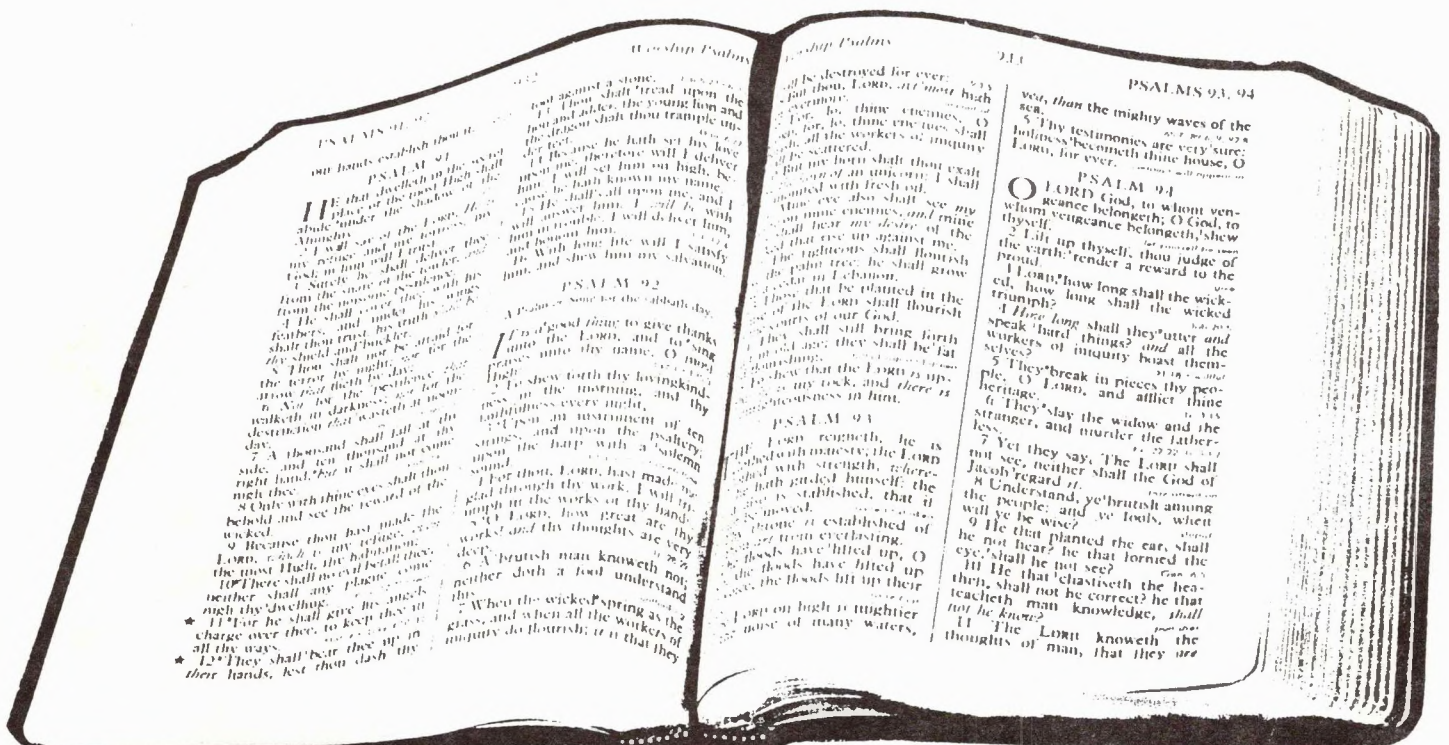 PSALMS 91, 92
932
Worship Psalms
our hands establish thou it.
PSALM 91
HE that dwelleth in the secret
place of the most High shall
abide under the shadow of the
Almighty.
2 I will say of the LORD, He is
my refuge and my fortress: my
God; in him will I trust.
3 Surely he shall deliver thee
from the snare of the fowler, and
from the noisome pestilence.
4 He shall cover thee with his
feathers, and under his wings
shalt thou trust: his truth shall be
thy shield and buckler.
5 Thou shalt not be afraid for
the terror by night; nor for the
arrow that flieth by day;
6 Nor for the pestilence that
walketh in darkness; nor for the
destruction that wasteth at noon-
day.
7 A thousand shall fall at thy
side, and ten thousand at thy
right hand; but it shall not come
nigh thee.
8 Only with thine eyes shalt thou
behold and see the reward of the
wicked.
9 Because thou hast made the
LORD, which is my refuge, even
the most High, thy habitation;
10 There shall no evil befall thee,
neither shall any plague come
nigh thy dwelling.
★ 11 For he shall give his angels
charge over thee, to keep thee in
all thy ways.
★ 12 They shall bear thee up in
their hands, lest thou dash thy
foot against a stone.
13 Thou shalt tread upon the
lion and adder: the young lion and
the dragon shalt thou trample un-
der feet.
14 Because he hath set his love
upon me, therefore will I deliver
him: I will set him on high, be-
cause he hath known my name.
15 He shall call upon me, and I
will answer him: I will be with
him in trouble; I will deliver him,
and honour him.
16 With long life will I satisfy
him, and shew him my salvation.
PSALM 92
A Psalm or Song for the sabbath day.
IT is a good thing to give thanks
unto the LORD, and to sing
praises unto thy name, O most
High:
2 To shew forth thy lovingkind-
ness in the morning, and thy
faithfulness every night,
3 Upon an instrument of ten
strings, and upon the psaltery;
upon the harp with a solemn
sound.
4 For thou, LORD, hast made me
glad through thy work: I will tri-
umph in the works of thy hands.
5 O LORD, how great are thy
works! and thy thoughts are very
deep.
6 A brutish man knoweth not;
neither doth a fool understand
this.
7 When the wicked spring as the
grass, and when all the workers of
iniquity do flourish; it is that they
Worship Psalms
933
PSALMS 93, 94
shall be destroyed for ever:
But thou, LORD, art most high
evermore.
For, lo, thine enemies, O
for, lo, thine enemies shall
all the workers of iniquity
be scattered.
But my horn shalt thou exalt
horn of an unicorn: I shall
anointed with fresh oil.
Mine eye also shall see my
on mine enemies, and mine
shall hear my desire of the
that rise up against me.
The righteous shall flourish
the palm tree: he shall grow
cedar in Lebanon.
Those that be planted in the
of the LORD shall flourish
courts of our God.
They shall still bring forth
in old age; they shall be fat
flourishing;
To shew that the LORD is up-
my rock, and there is
unrighteousness in him.
PSALM 93
THE LORD reigneth, he is
clothed with majesty; the LORD
clothed with strength, where-
hath girded himself: the
also is stablished, that it
be moved.
throne is established of
art from everlasting.
floods have lifted up, O
the floods have lifted up
the floods lift up their
LORD on high is mightier
noise of many waters,
yea, than the mighty waves of the
sea.
5 Thy testimonies are very sure:
holiness becometh thine house, O
LORD, for ever.
PSALM 94
O LORD God, to whom ven-
geance belongeth; O God, to
whom vengeance belongeth, shew
thyself.
2 Lift up thyself, thou judge of
the earth: render a reward to the
proud.
3 LORD, how long shall the wick-
ed, how long shall the wicked
triumph?
4 How long shall they utter and
speak hard things? and all the
workers of iniquity boast them-
selves?
5 They break in pieces thy peo-
ple, O LORD, and afflict thine
heritage.
6 They slay the widow and the
stranger, and murder the father-
less.
7 Yet they say, The LORD shall
not see, neither shall the God of
Jacob regard it.
8 Understand, ye brutish among
the people: and ye fools, when
will ye be wise?
9 He that planted the ear, shall
he not hear? he that formed the
eye, shall he not see?
10 He that chastiseth the hea-
then, shall not he correct? he that
teacheth man knowledge, shall
not he know?
11 The LORD knoweth the
thoughts of man, that they are